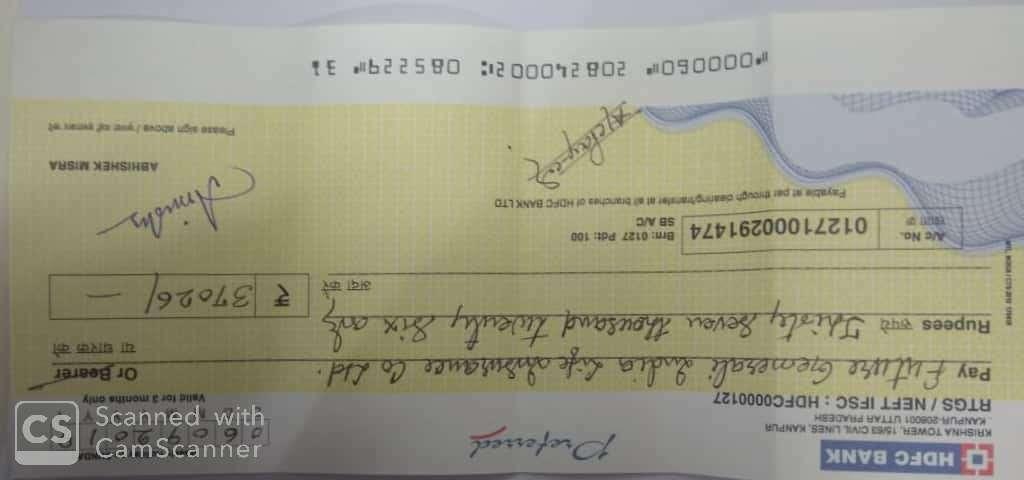 HDFC BANK
Preferred
KRISHNA TOWER, 15/63 CIVIL LINES, KANPUR
KANPUR-208001 UTTAR PRADESH
RTGS / NEFT IFSC : HDFC0000127
Valid for 3 months only
Pay Future Generali India Life Insurance Co Ltd. Or Bearer
या धारक को
Rupees रुपये Thirty Seven thousand twenty Six only
अदा करे
₹ 37026/-
A/c No. 01271000291474
Brn: 0127 Pdt: 100
SB A/C
Payable at par through clearing/transfer at all branches of HDFC BANK LTD
ABHISHEK MISRA
Please sign above /
⑈000060⑈ 208240002⑆ 085229⑈ 31
CS Scanned with
CamScanner